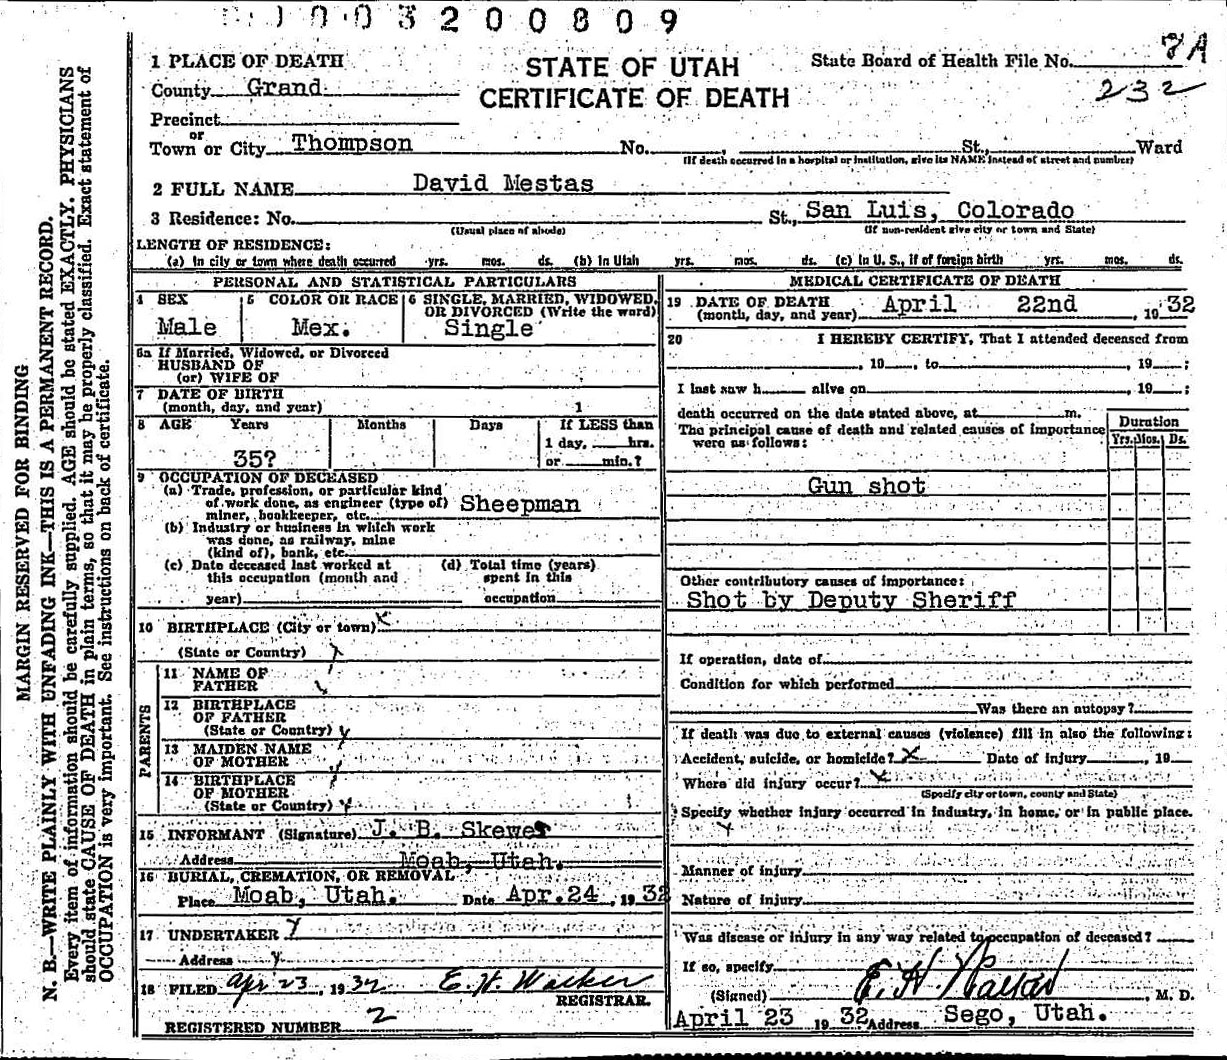 0 0 3 2 0 0 8 0 9
1 PLACE OF DEATH
STATE OF UTAH
CERTIFICATE OF DEATH
State Board of Health File No. 7A
232
County Grand
Precinct
or
Town or City Thompson No. , St., Ward
(If death occurred in a hospital or institution, give its NAME instead of street and number)
2 FULL NAME David Mestas
3 Residence: No. St., San Luis, Colorado
(Usual place of abode) (If non-resident give city or town and State)
LENGTH OF RESIDENCE:
(a) In city or town where death occurred yrs. mos. ds. (b) In Utah yrs. mos. ds. (c) In U. S., if of foreign birth yrs. mos. ds.
PERSONAL AND STATISTICAL PARTICULARS
4 SEX
Male
5 COLOR OR RACE
Mex.
6 SINGLE, MARRIED, WIDOWED, OR DIVORCED (Write the word)
Single
6a If Married, Widowed, or Divorced
HUSBAND OF
(or) WIFE OF
7 DATE OF BIRTH
(month, day, and year)
8 AGE Years Months Days If LESS than
1 day, hrs.
35? or min.?
9 OCCUPATION OF DECEASED
(a) Trade, profession, or particular kind
of work done, as engineer (type of)
miner, bookkeeper, etc. Sheepman
(b) Industry or business in which work
was done, as railway, mine
(kind of), bank, etc.
(c) Date deceased last worked at
this occupation (month and
year)
(d) Total time (years)
spent in this
occupation
10 BIRTHPLACE (City or town) x
(State or Country)
PARENTS
11 NAME OF
FATHER
12 BIRTHPLACE
OF FATHER
(State or Country)
13 MAIDEN NAME
OF MOTHER
14 BIRTHPLACE
OF MOTHER
(State or Country)
15 INFORMANT (Signature) J. B. Skewes
Address Moab, Utah.
16 BURIAL, CREMATION, OR REMOVAL
Place Moab, Utah. Date Apr.24, 1932
17 UNDERTAKER
Address
18 FILED Apr 23, 1932 E. H. Walker
REGISTRAR.
REGISTERED NUMBER 2
MEDICAL CERTIFICATE OF DEATH
19 DATE OF DEATH
(month, day, and year) April 22nd , 1932
20 I HEREBY CERTIFY, That I attended deceased from
, 19 , to , 19 ;
I last saw h alive on , 19 ;
death occurred on the date stated above, at m.
The principal cause of death and related causes of importance
were as follows:
Duration
Yrs. Mos. Ds.
Gun shot
Other contributory causes of importance:
Shot by Deputy Sheriff
If operation, date of
Condition for which performed
Was there an autopsy?
If death was due to external causes (violence) fill in also the following:
Accident, suicide, or homicide? x Date of injury , 19
Where did injury occur? x
(Specify city or town, county and State)
Specify whether injury occurred in industry, in home, or in public place.
Manner of injury
Nature of injury
Was disease or injury in any way related to occupation of deceased?
If so, specify
(Signed) E. H. Walker , M. D.
April 23 1932 Address Sego, Utah.
MARGIN RESERVED FOR BINDING
N. B.—WRITE PLAINLY WITH UNFADING INK—THIS IS A PERMANENT RECORD.
Every item of information should be carefully supplied. AGE should be stated EXACTLY. PHYSICIANS
should state CAUSE OF DEATH in plain terms, so that it may be properly classified. Exact statement of
OCCUPATION is very important. See instructions on back of certificate.